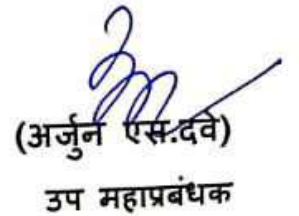 (अर्जुन एस.दवे)
उप महाप्रबंधक